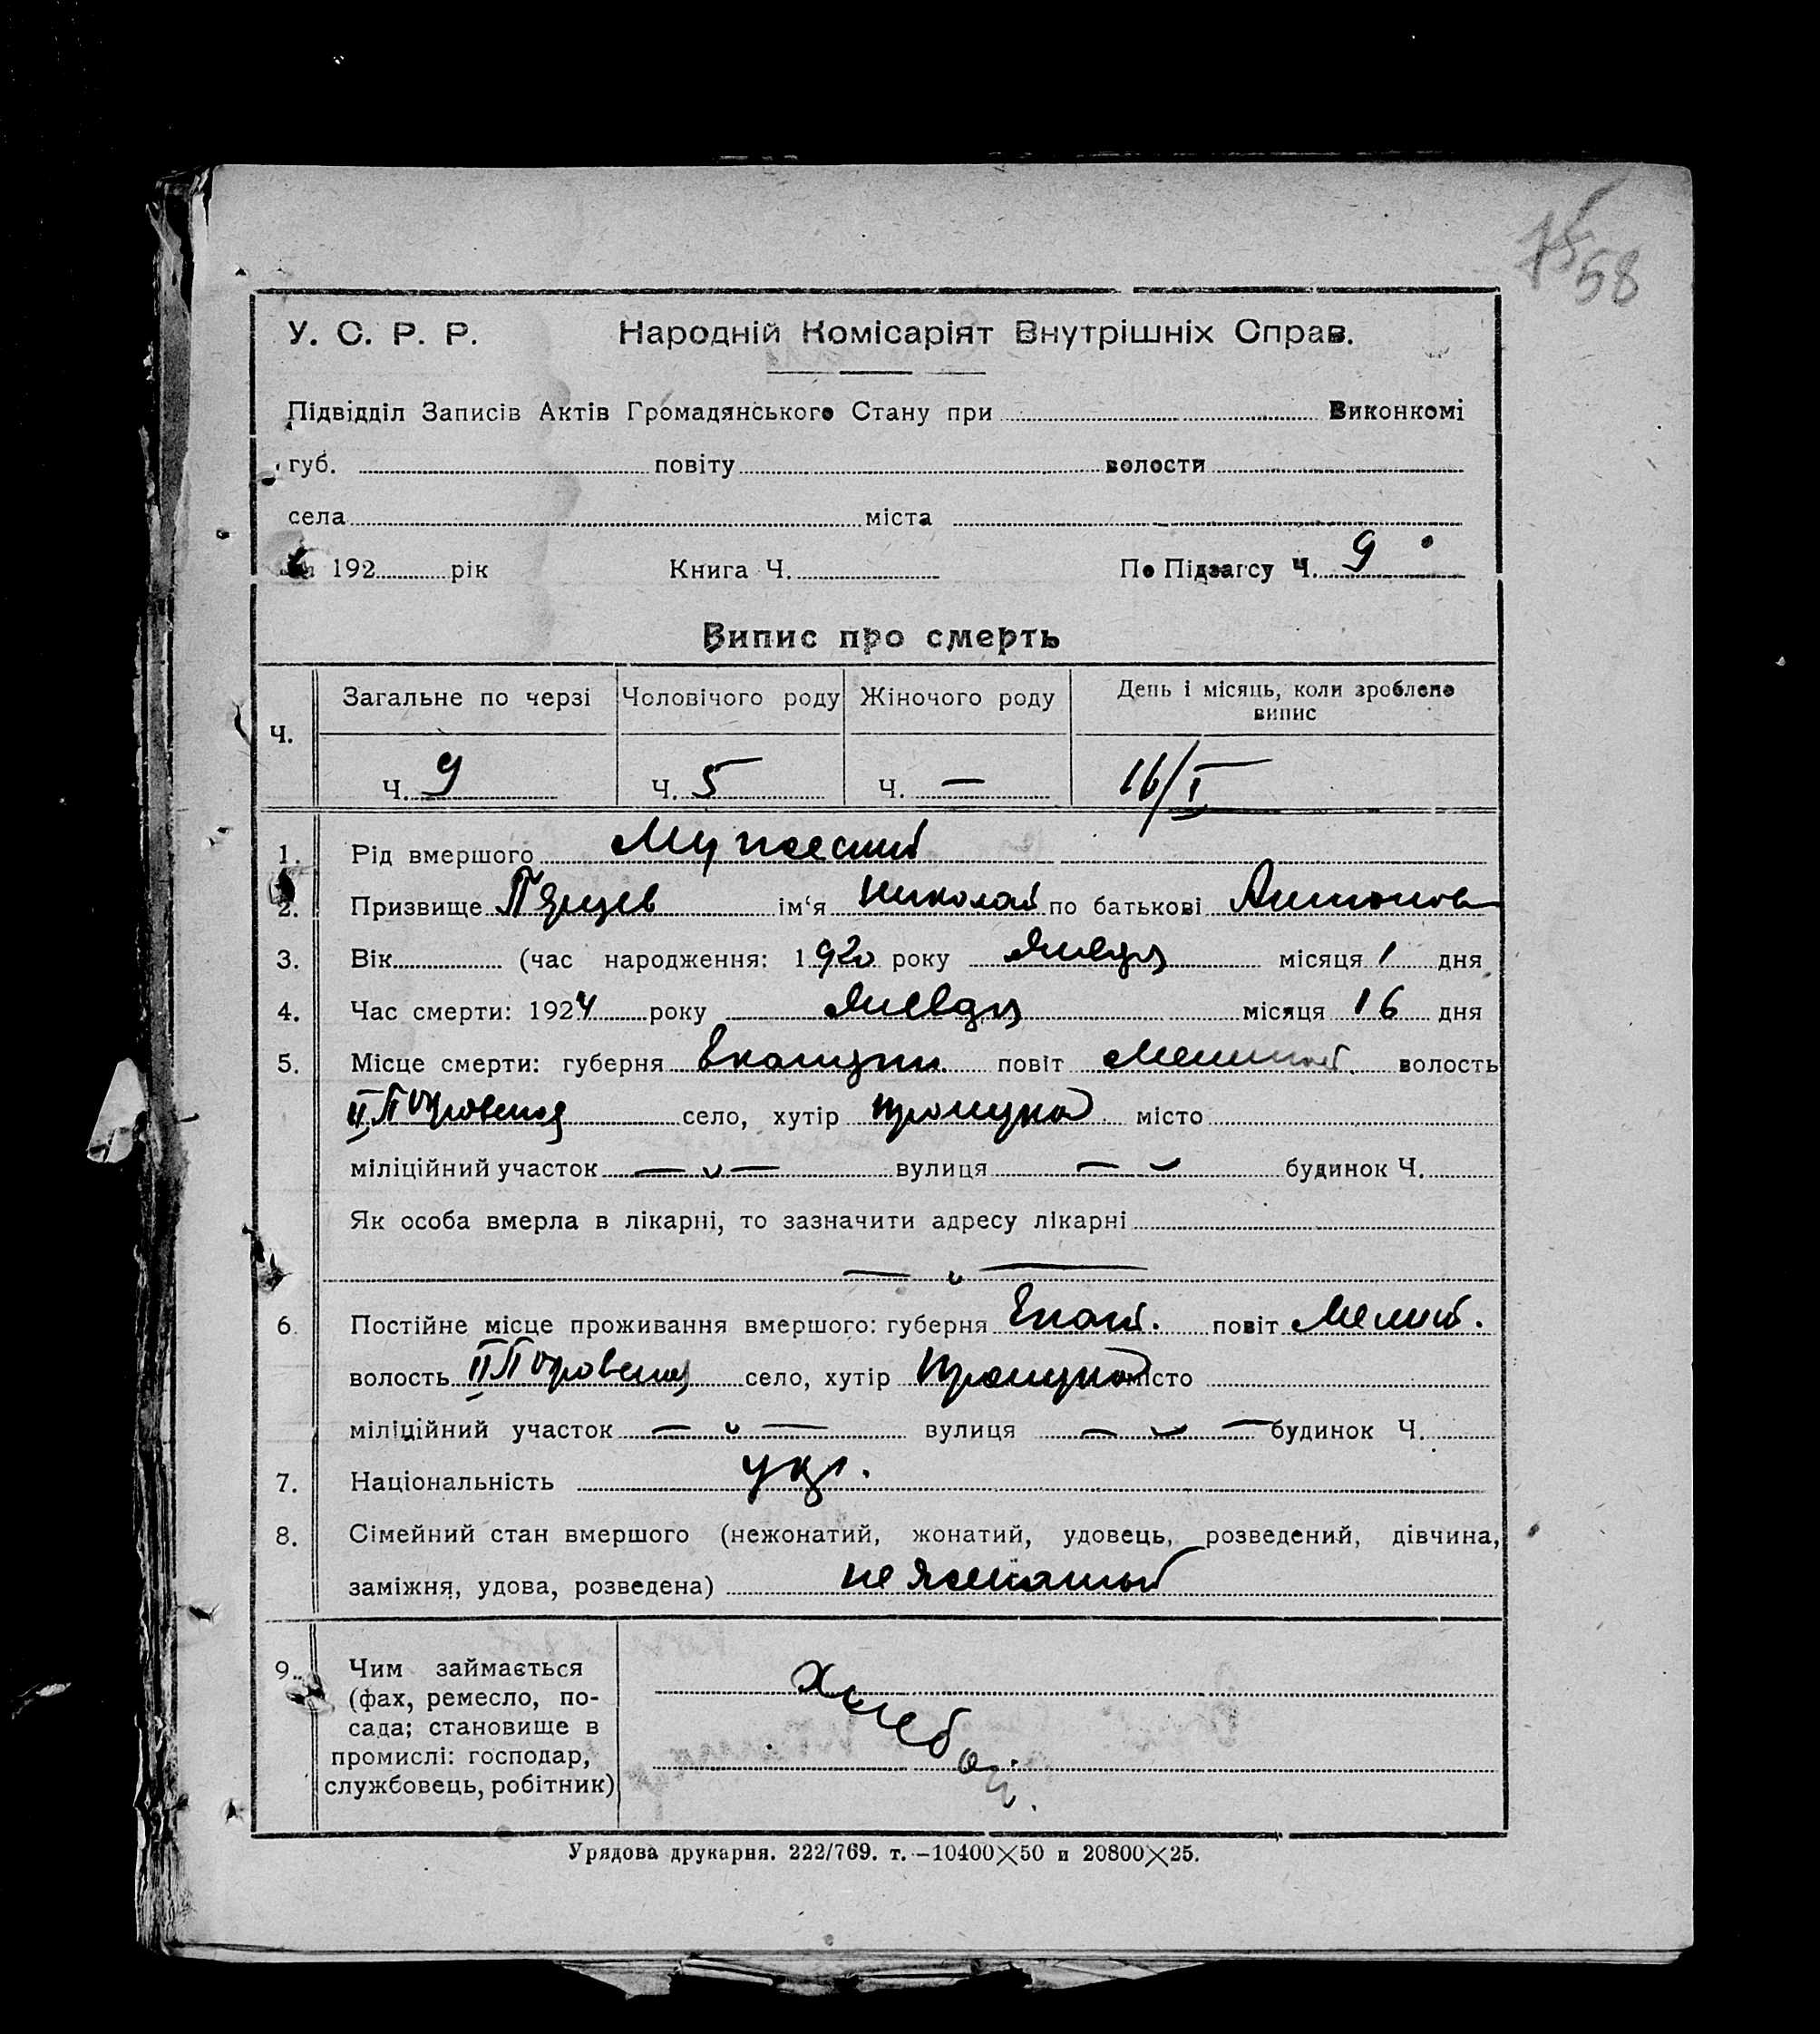 75 58
У. С. Р. Р. Народній Комісаріят Внутрішніх Справ.
Підвідділ Записів Актів Громадянського Стану при Виконкомі
губ. повіту волости
села міста
192 рік Книга Ч. По Підзагсу Ч. 9
Випис про смерть
Ч. Загальне по черзі Чоловічого роду Жіночого роду День і місяць, коли зроблено випис
Ч. 9 Ч. 5 Ч. — 16/I
1. Рід вмершого Мужеский
2. Призвище ім‘я Николай по батькові Антонов
3. Вік (час народження: 1920 року Января місяця 1 дня
4. Час смерти: 1924 року Января місяця 16 дня
5. Місце смерти: губерня повіт волость
II Покровская село, хутір місто
міліційний участок — „ — вулиця — „ будинок Ч.
Як особа вмерла в лікарні, то зазначити адресу лікарні
— „ —
6. Постійне місце проживання вмершого: губерня Екат. повіт Мелит.
волость II Покровская село, хутір місто
міліційний участок — „ — вулиця — „ — будинок Ч.
7. Національність укр.
8. Сімейний стан вмершого (нежонатий, жонатий, удовець, розведений, дівчина,
заміжня, удова, розведена) не женатый
9. Чим займається
(фах, ремесло, по-
сада; становище в
промислі: господар,
службовець, робітник)
Хлебоп.
Урядова друкарня. 222/769. т.—10400×50 и 20800×25.